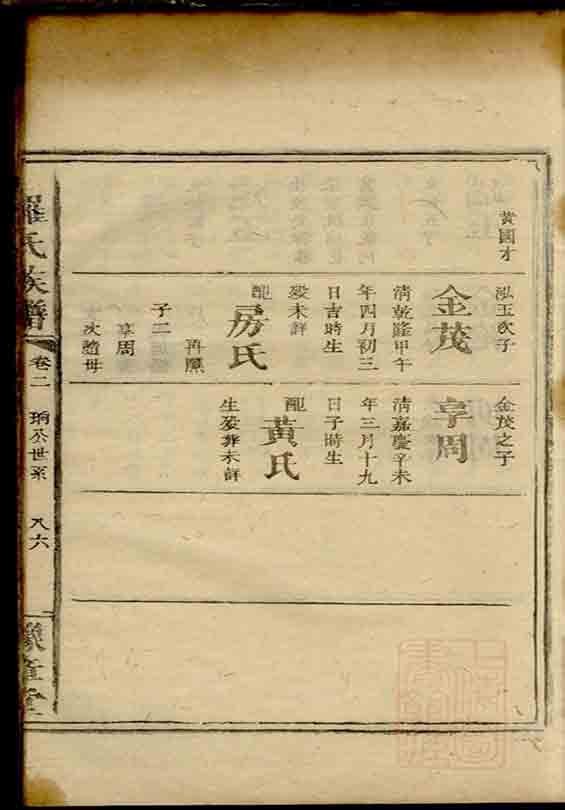 黃國才
泓玉次子
金茂
清乾隆甲午
年四月初三
日吉時生
歿未詳
配
房氏
再醮
子二
享周
次隨母
金茂之子
享周
清嘉慶辛未
年三月十九
日子時生
配
黃氏
生歿葬未詳
羅氏族譜
卷二
珦公世系
八六
豫章堂